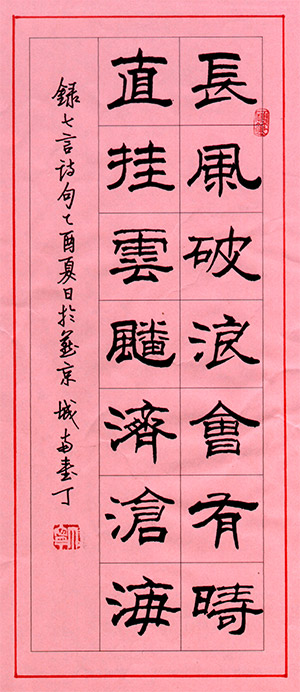 長風破浪會有時
直挂雲颿濟滄海
録七言詩句乙酉夏日於燕京城南書丁